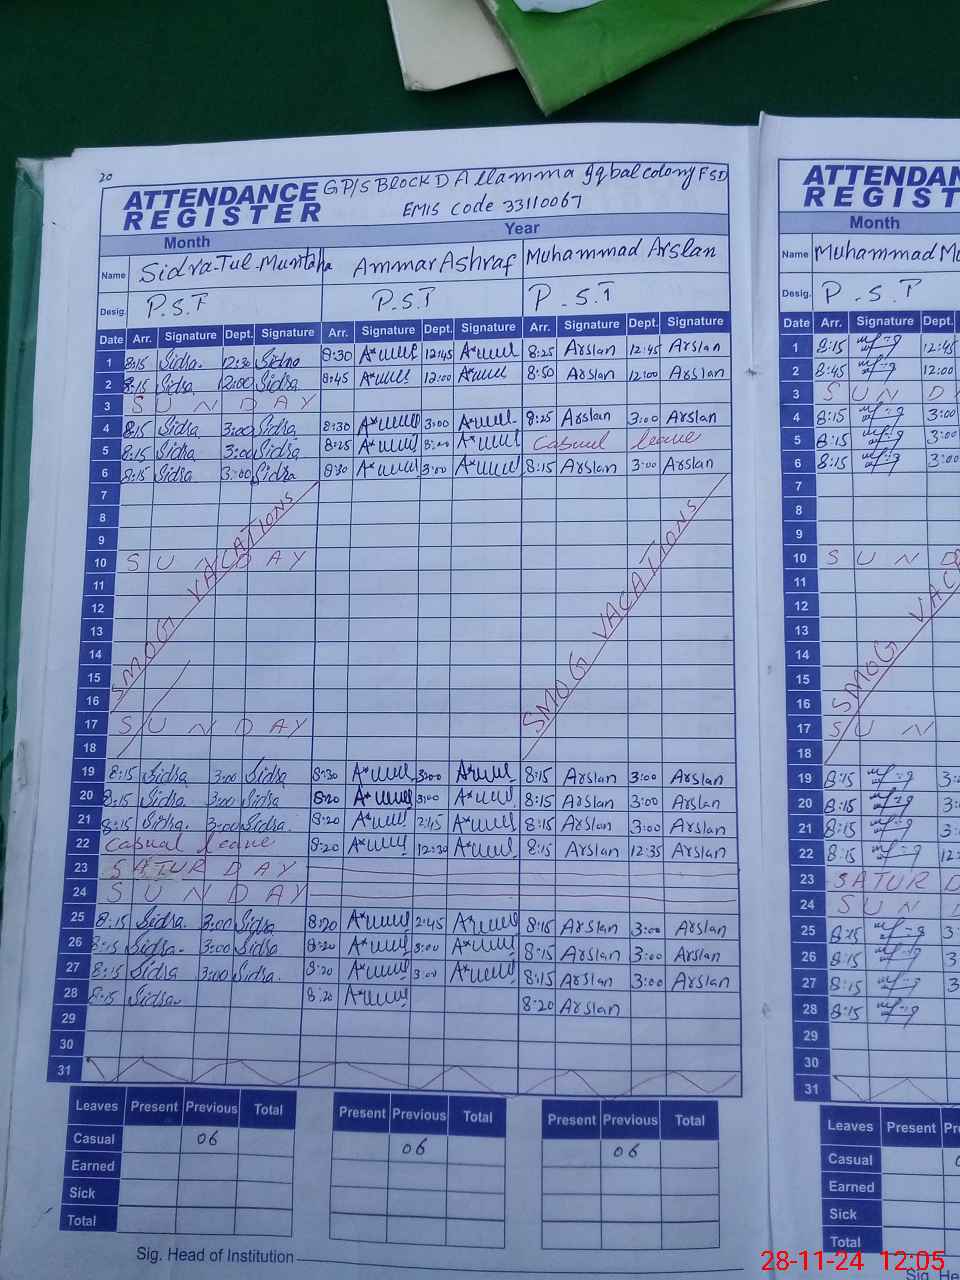 20
ATTENDANCE REGISTER GP/S Block D Allamma Iqbal colony FSD
EMIS Code 33110067
Month Year
Name Sidra-Tul-Muntaha Ammar Ashraf Muhammad Arslan
Desig. P.S.T P.S.T P.S.T
Date Arr. Signature Dept. Signature Arr. Signature Dept. Signature Arr. Signature Dept. Signature
1 8:15 Sidra 12:30 Sidra 8:30 12:45 8:25 Arslan 12:45 Arslan
2 8:15 Sidra 12:00 Sidra 8:45 12:00 8:50 Arslan 12:00 Arslan
3 SUNDAY
4 8:15 Sidra 3:00 Sidra 8:30 3:00 8:25 Arslan 3:00 Arslan
5 8:15 Sidra 3:00 Sidra 8:25 3:00 Casual leave
6 8:15 Sidra 3:00 Sidra 8:30 3:00 8:15 Arslan 3:00 Arslan
7
8
9
10 SUNDAY
11
12
13
14
15
16
17 SUNDAY
18
SMOG VACATIONS SMOG VACATIONS
19 8:15 Sidra 3:00 Sidra 8:30 3:00 8:15 Arslan 3:00 Arslan
20 8:15 Sidra 3:00 Sidra 8:20 3:00 8:15 Arslan 3:00 Arslan
21 8:15 Sidra 3:00 Sidra 8:20 2:45 8:15 Arslan 3:00 Arslan
22 Casual leave 8:20 12:30 8:15 Arslan 12:35 Arslan
23 SATURDAY
24 SUNDAY
25 8:15 Sidra 3:00 Sidra 8:20 2:45 8:15 Arslan 3:00 Arslan
26 8:15 Sidra 3:00 Sidra 8:20 3:00 8:15 Arslan 3:00 Arslan
27 8:15 Sidra 3:00 Sidra 8:20 3:00 8:15 Arslan 3:00 Arslan
28 8:15 Sidra 8:20 8:20 Arslan
29
30
31
Leaves Present Previous Total Present Previous Total Present Previous Total
Casual 06 06 06
Earned
Sick
Total
Sig. Head of Institution
ATTENDAN
REGIST
Month
Name Muhammad Mu
Desig. P.S.T
Date Arr. Signature Dept.
1 8:15 12:45
2 8:45 12:00
3 SUND
4 8:15 3:00
5 8:15 3:00
6 8:15 3:00
7
8
9
10 SUND
11
12
13
14
15
16
17 SUN
18
SMOG VAC
19 8:15 3:
20 8:15 3:
21 8:15 3:
22 8:15 12:
23 SATURD
24 SUND
25 8:15 3:
26 8:15 3
27 8:15 3
28 8:15
29
30
31
Leaves Present Pre
Casual
Earned
Sick
Total
Sig. He
28-11-24 12:05